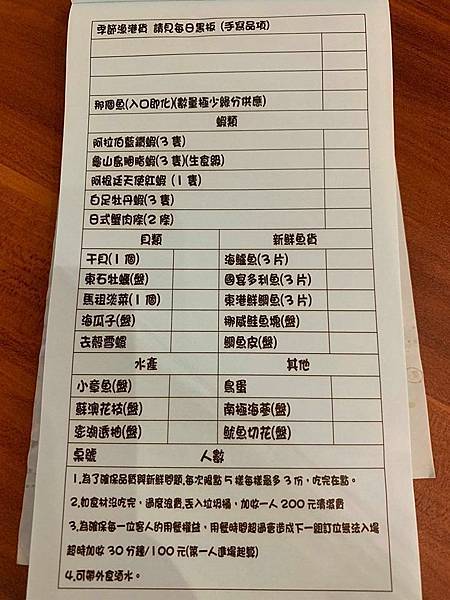 季節漁港貨 請見每日黑板 (手寫品項)
那個魚(入口即化)(數量極少緣分供應)
蝦類
阿拉伯藍鑽蝦(3隻)
龜山島胭脂蝦(3隻)(生食級)
阿根廷天使紅蝦 (1隻)
白足牡丹蝦(3隻)
日式蟹肉棒(2棒)
貝類 新鮮魚貨
干貝(1個) 海鱺魚(3片)
東石牡蠣(盤) 國宴多利魚(3片)
馬祖淡菜(1個) 東港鮮鯛魚(3片)
海瓜子(盤) 挪威鮭魚塊(盤)
去殼雪螺 鯛魚皮(盤)
水產 其他
小章魚(盤) 鳥蛋
蘇澳花枝(盤) 南極海蔘(盤)
澎湖透抽(盤) 魷魚切花(盤)
桌號 人數
1.為了確保品質與新鮮問題,每次限點5樣每樣最多3份,吃完在點。
2.如食材沒吃完,過度浪費,丟入垃圾桶,加收一人200元清潔費
3.為確保每一位客人的用餐權益,用餐時間超過會造成下一組訂位無法入場
超時加收30分鐘/100元(第一人進場起算)
4.可帶外食酒水。